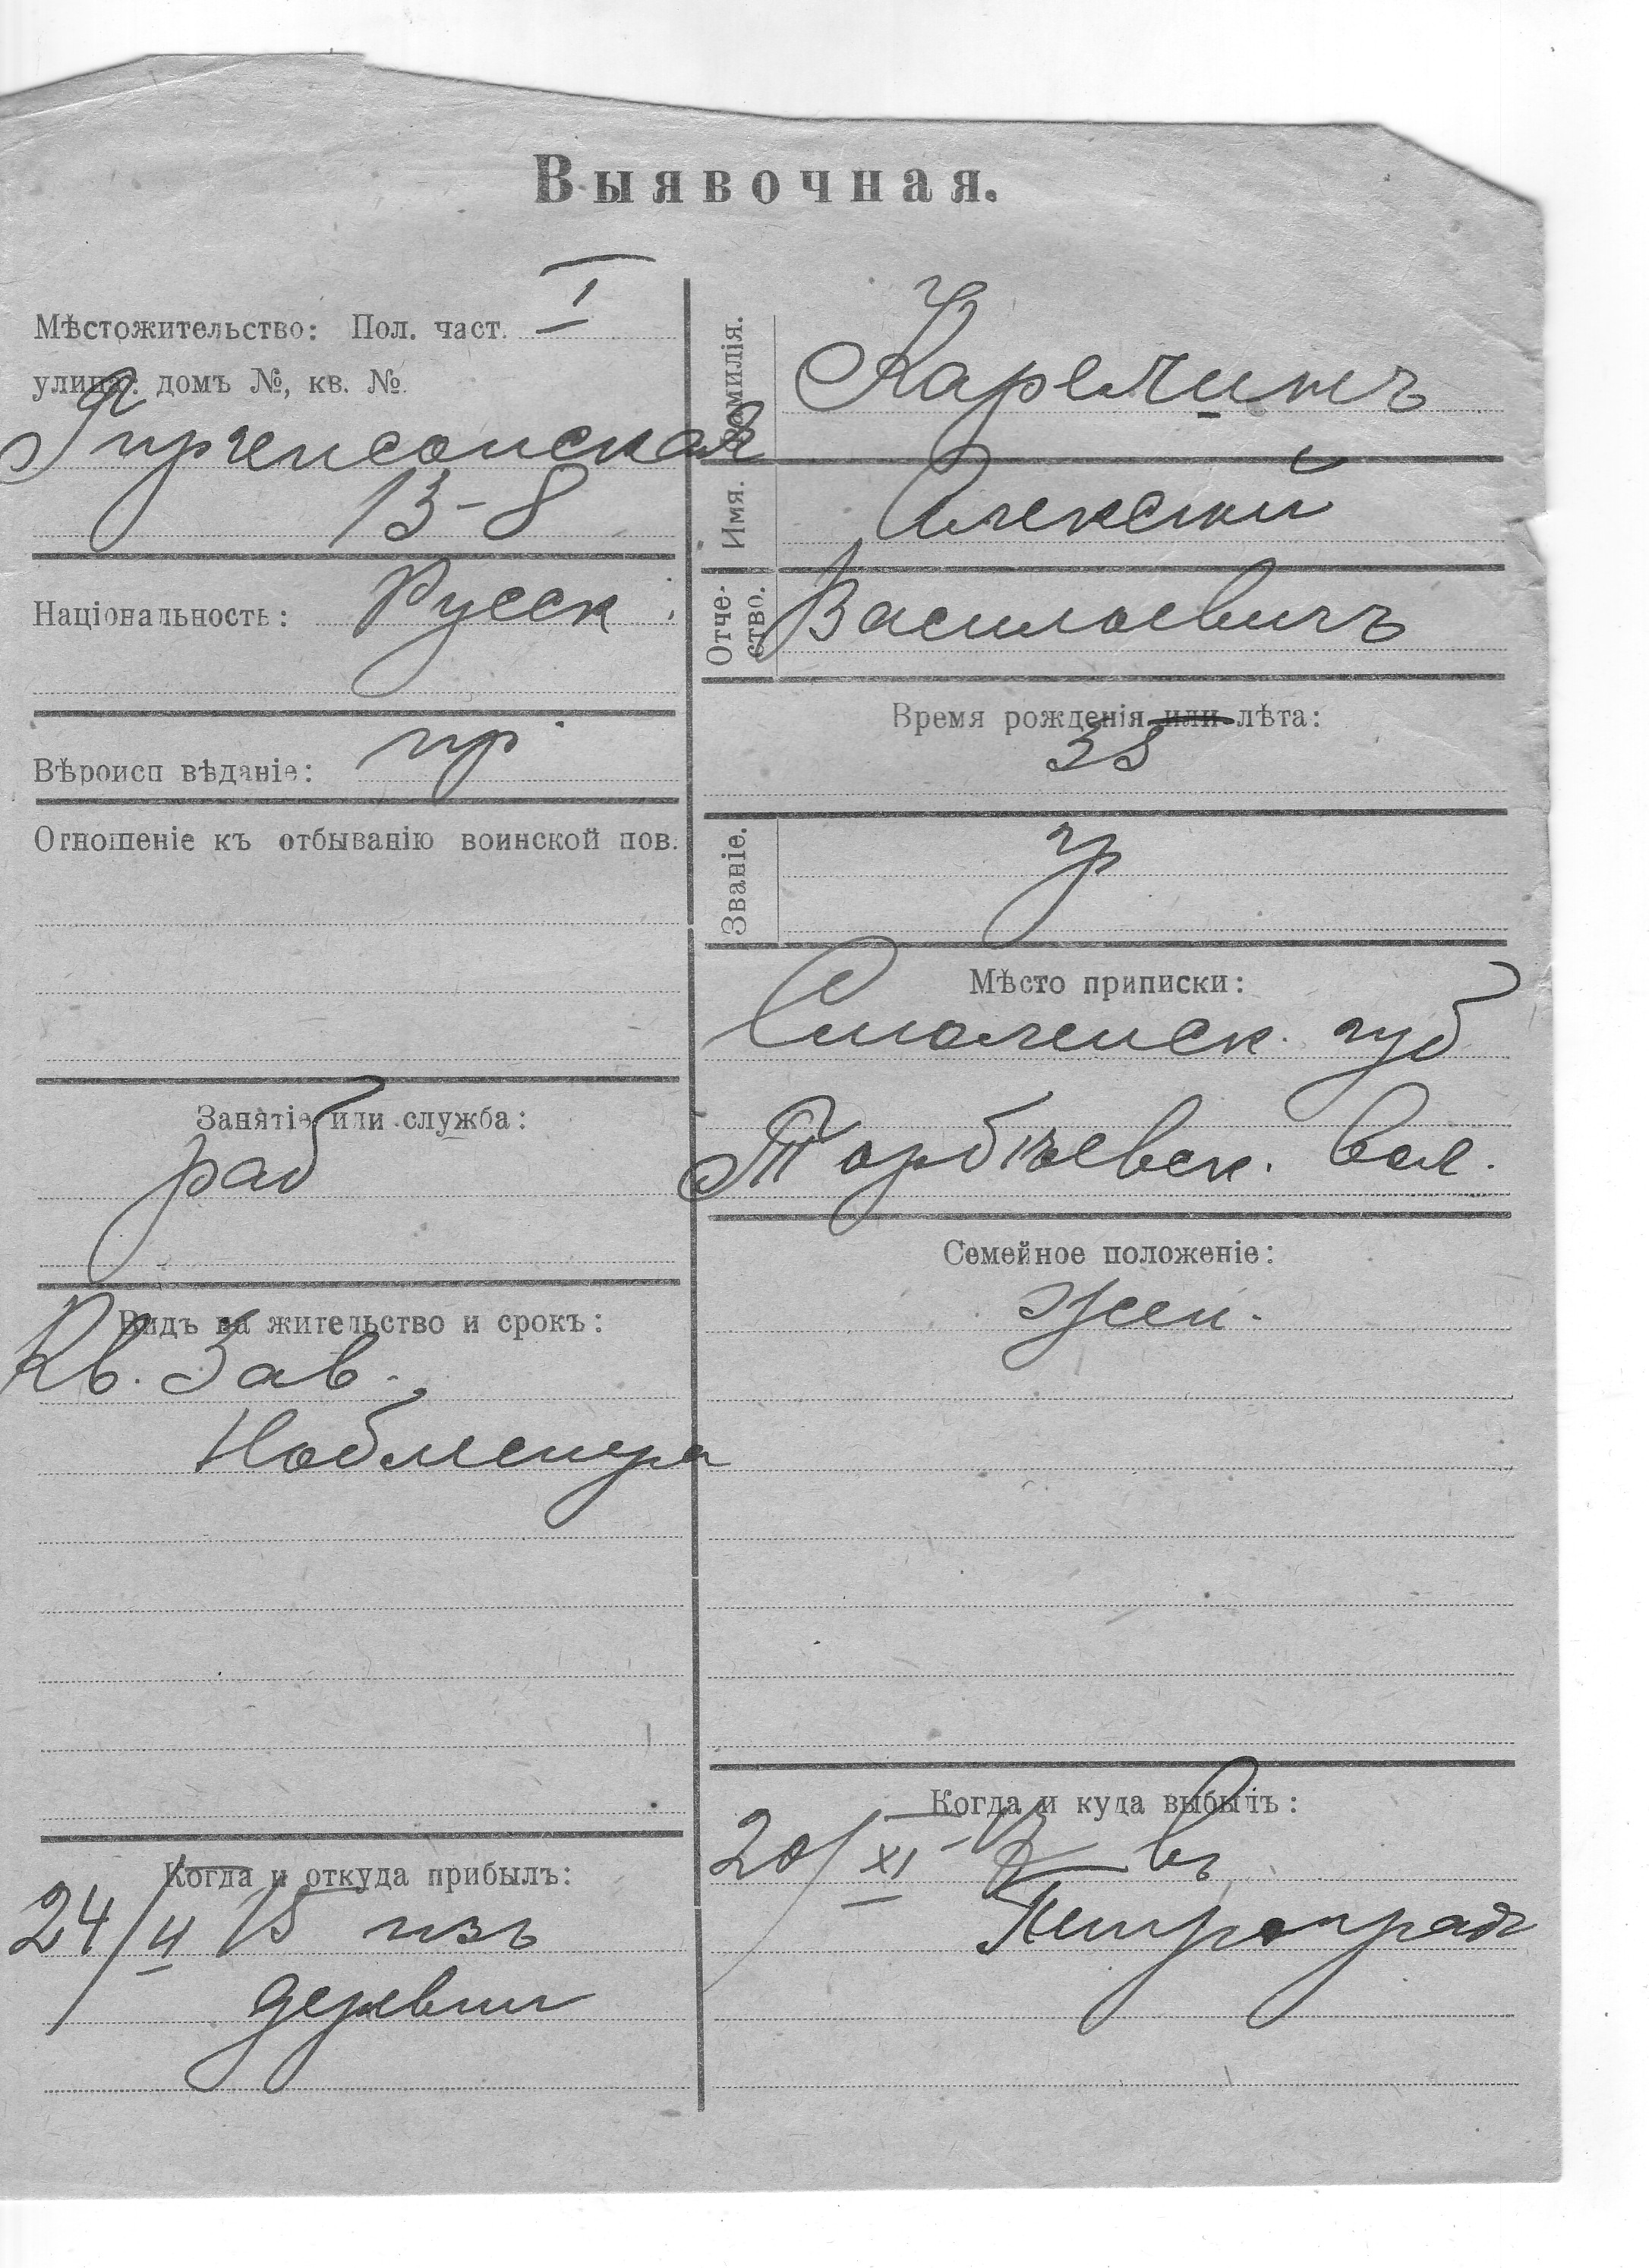 Выявочная.
Мѣстожительство: Пол. част. I
улица: домъ №, кв. №.
13-8
Національность: Русск
Вѣроисп вѣданіе: пр
Отношеніе къ отбыванію воинской пов.
Занятіе или служба:
раб
Видъ на жительство и срокъ:
Кв. Зав.
Когда и откуда прибылъ:
24/II 15 изъ
деревни
Фамилія.
Имя. Алексѣй
Отчество. Васильевичъ
Время рожденія или лѣта:
Званіе. гр
Мѣсто приписки:
Смоленск. губ
вол.
Семейное положеніе:
жен.
Когда и куда выбылъ:
20/XI 17 въ
Петроградъ